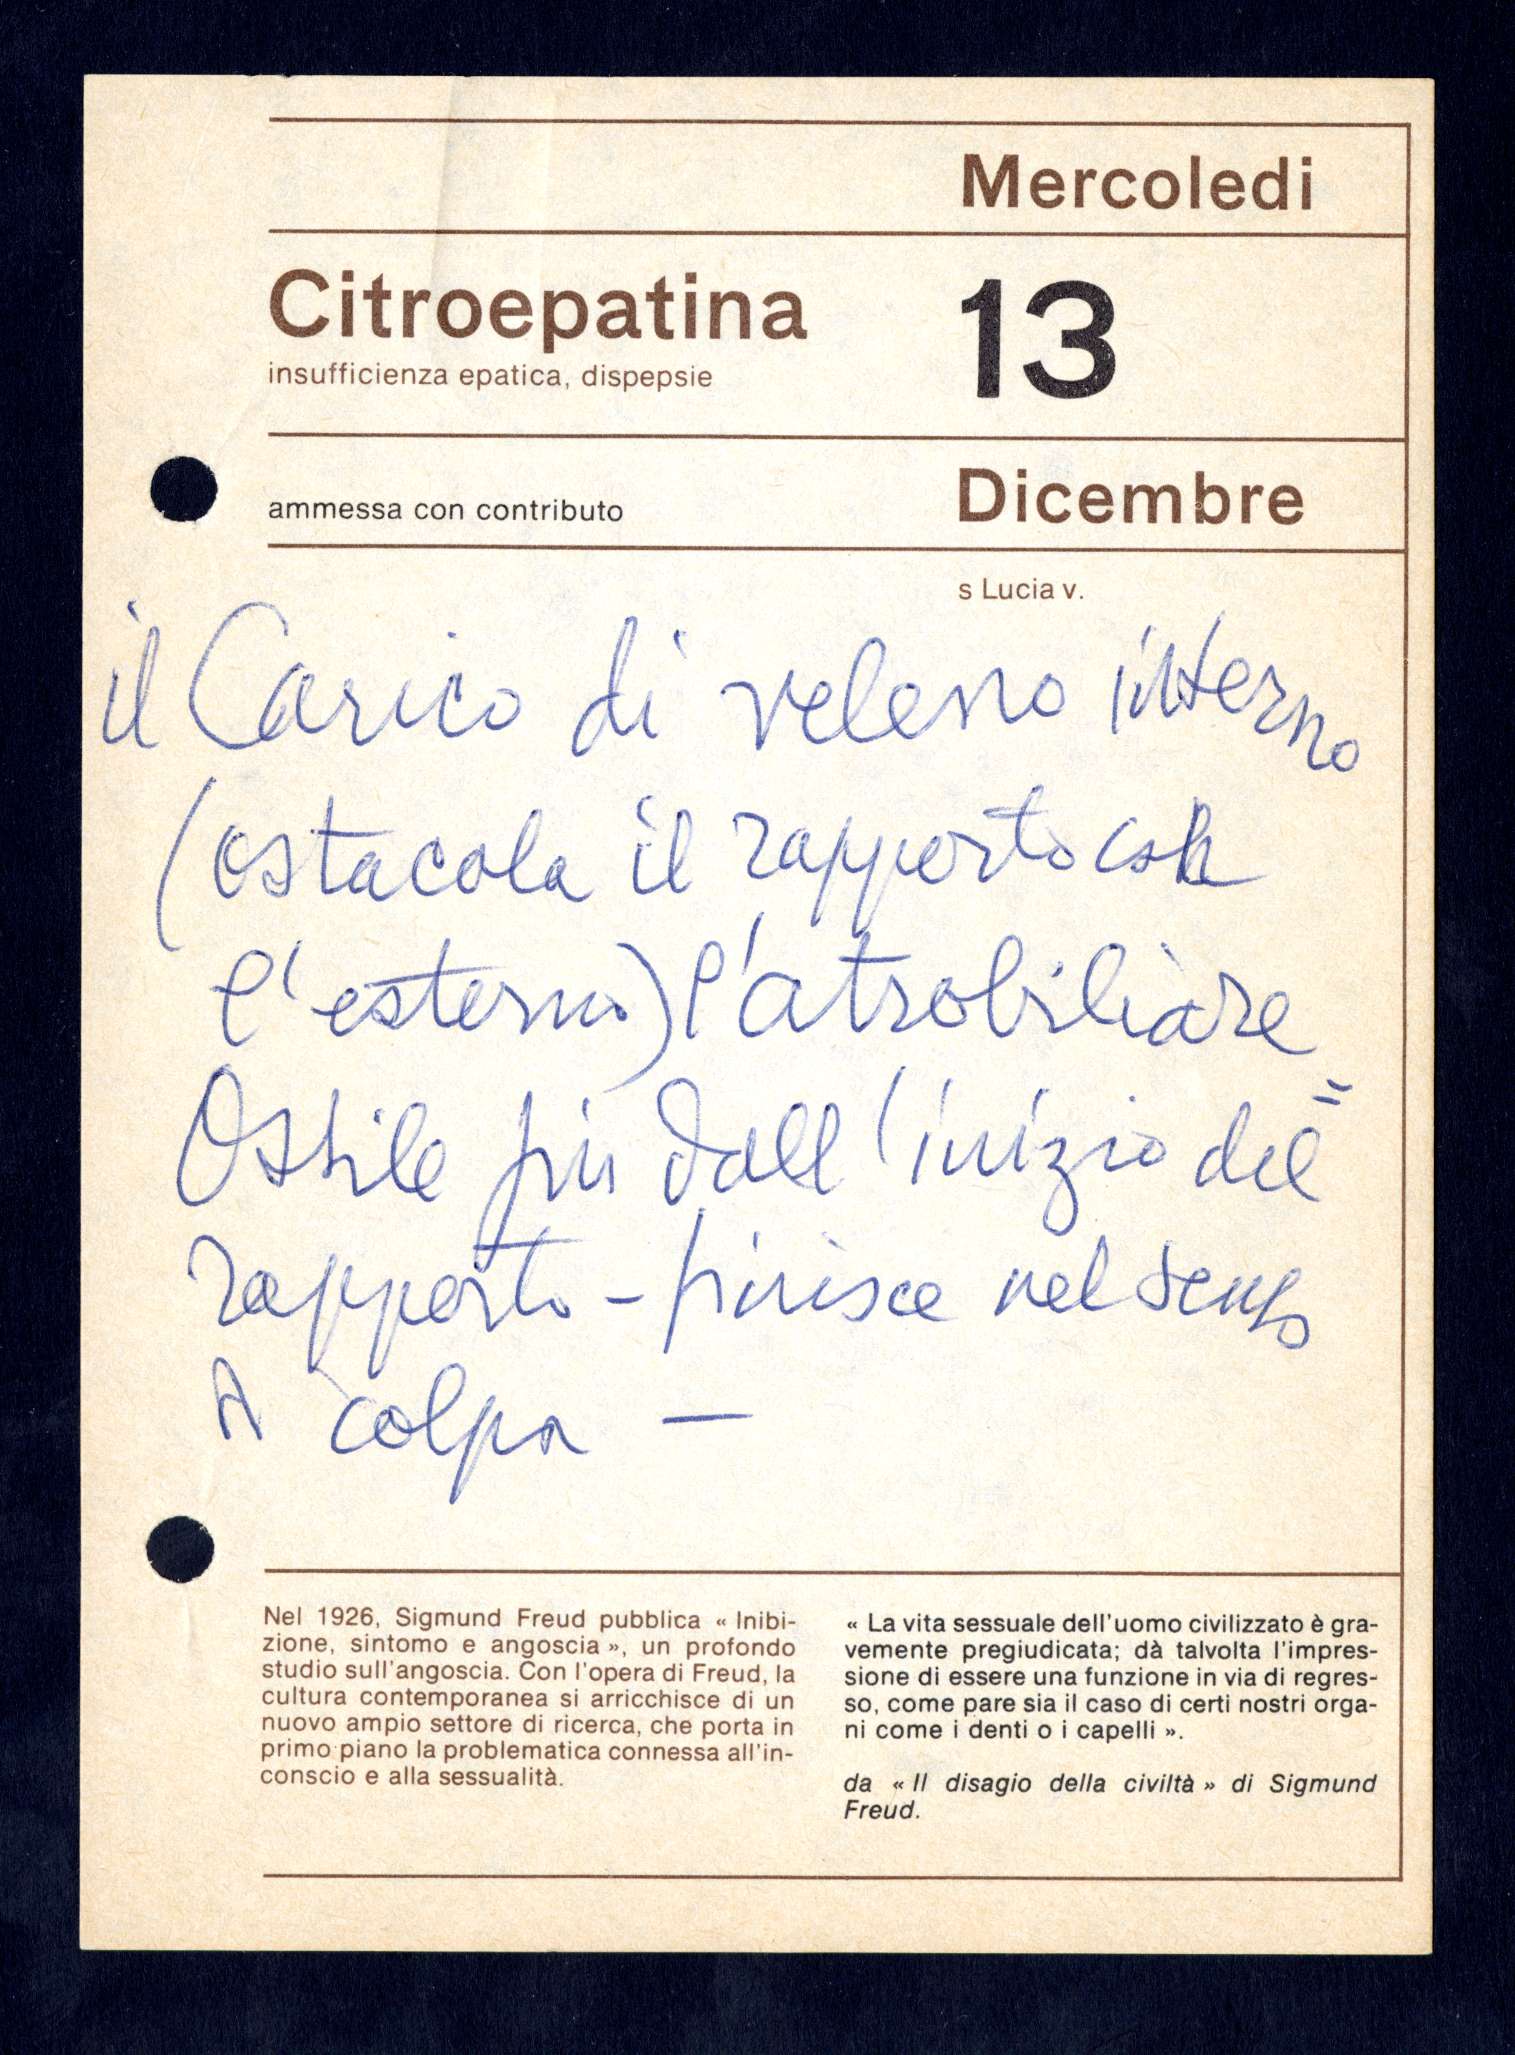 Mercoledi
Citroepatina
insufficienza epatica, dispepsie
13
ammessa con contributo
Dicembre
s Lucia v.
il Carico di veleno interno
(ostacola il rapporto con
l'esterno) l'atrobiliare
Ostile fin dall'inizio del
rapporto - finisce nel senso
di colpa —
Nel 1926, Sigmund Freud pubblica « Inibi-
zione, sintomo e angoscia », un profondo
studio sull'angoscia. Con l'opera di Freud, la
cultura contemporanea si arricchisce di un
nuovo ampio settore di ricerca, che porta in
primo piano la problematica connessa all'in-
conscio e alla sessualità.
« La vita sessuale dell'uomo civilizzato è gra-
vemente pregiudicata; dà talvolta l'impres-
sione di essere una funzione in via di regres-
so, come pare sia il caso di certi nostri orga-
ni come i denti o i capelli ».
da « Il disagio della civiltà » di Sigmund
Freud.